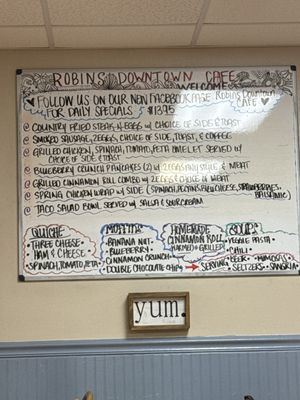 ROBINS DOWNTOWN CAFE
WELCOME
FOLLOW US ON OUR NEW FACEBOOK PAGE ROBINS DOWNTOWN
FOR DAILY SPECIALS $13.95 CAFE
COUNTRY FRIED STEAK & EGGS w/ CHOICE OF SIDE & TOAST
SMOKED SAUSAGE, 2 EGGS, CHOICE OF SIDE, TOAST, & COFFEE
GRILLED CHICKEN, SPINACH, TOMATO, FETA OMELET SERVED W/
CHOICE OF SIDE & TOAST
BLUEBERRY CRUNCH PANCAKES (2) w/ 2 EGGS ANY STYLE & MEAT
GRILLED CINNAMON ROLL COMBO w/ 2 EGGS & CHOICE OF MEAT
SPRING CHICKEN WRAP w/ SIDE (SPINACH, PECANS, BLEU CHEESE, STRAWBERRIES,
BALSAMIC)
TACO SALAD BOWL SERVED w/ SALSA & SOUR CREAM
QUICHE
• THREE CHEESE
• HAM & CHEESE
• SPINACH, TOMATO, FETA
MUFFINS
• BANANA NUT
• BLUEBERRY
• CINNAMON CRUNCH
• DOUBLE CHOCOLATE CHIP
HOMEMADE
CINNAMON ROLL
WARMED OR GRILLED
SERVING
SOUPS
• VEGGIE PASTA
• CHILI
• BEER • MIMOSAS
• SELTZERS • SANGRIA
yum.